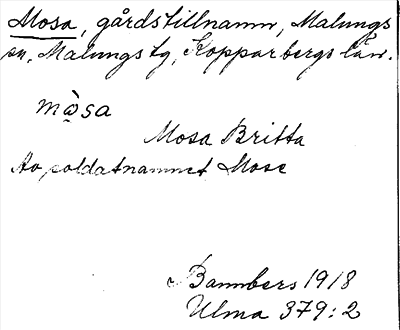 Mosa, gårdstillnamn, Malungs
sn, Malungs tg, Kopparbergs län.
mòsa
Mosa Britta
Av soldatnamnet Mose
Bannbers 1918
Ulma 379:2